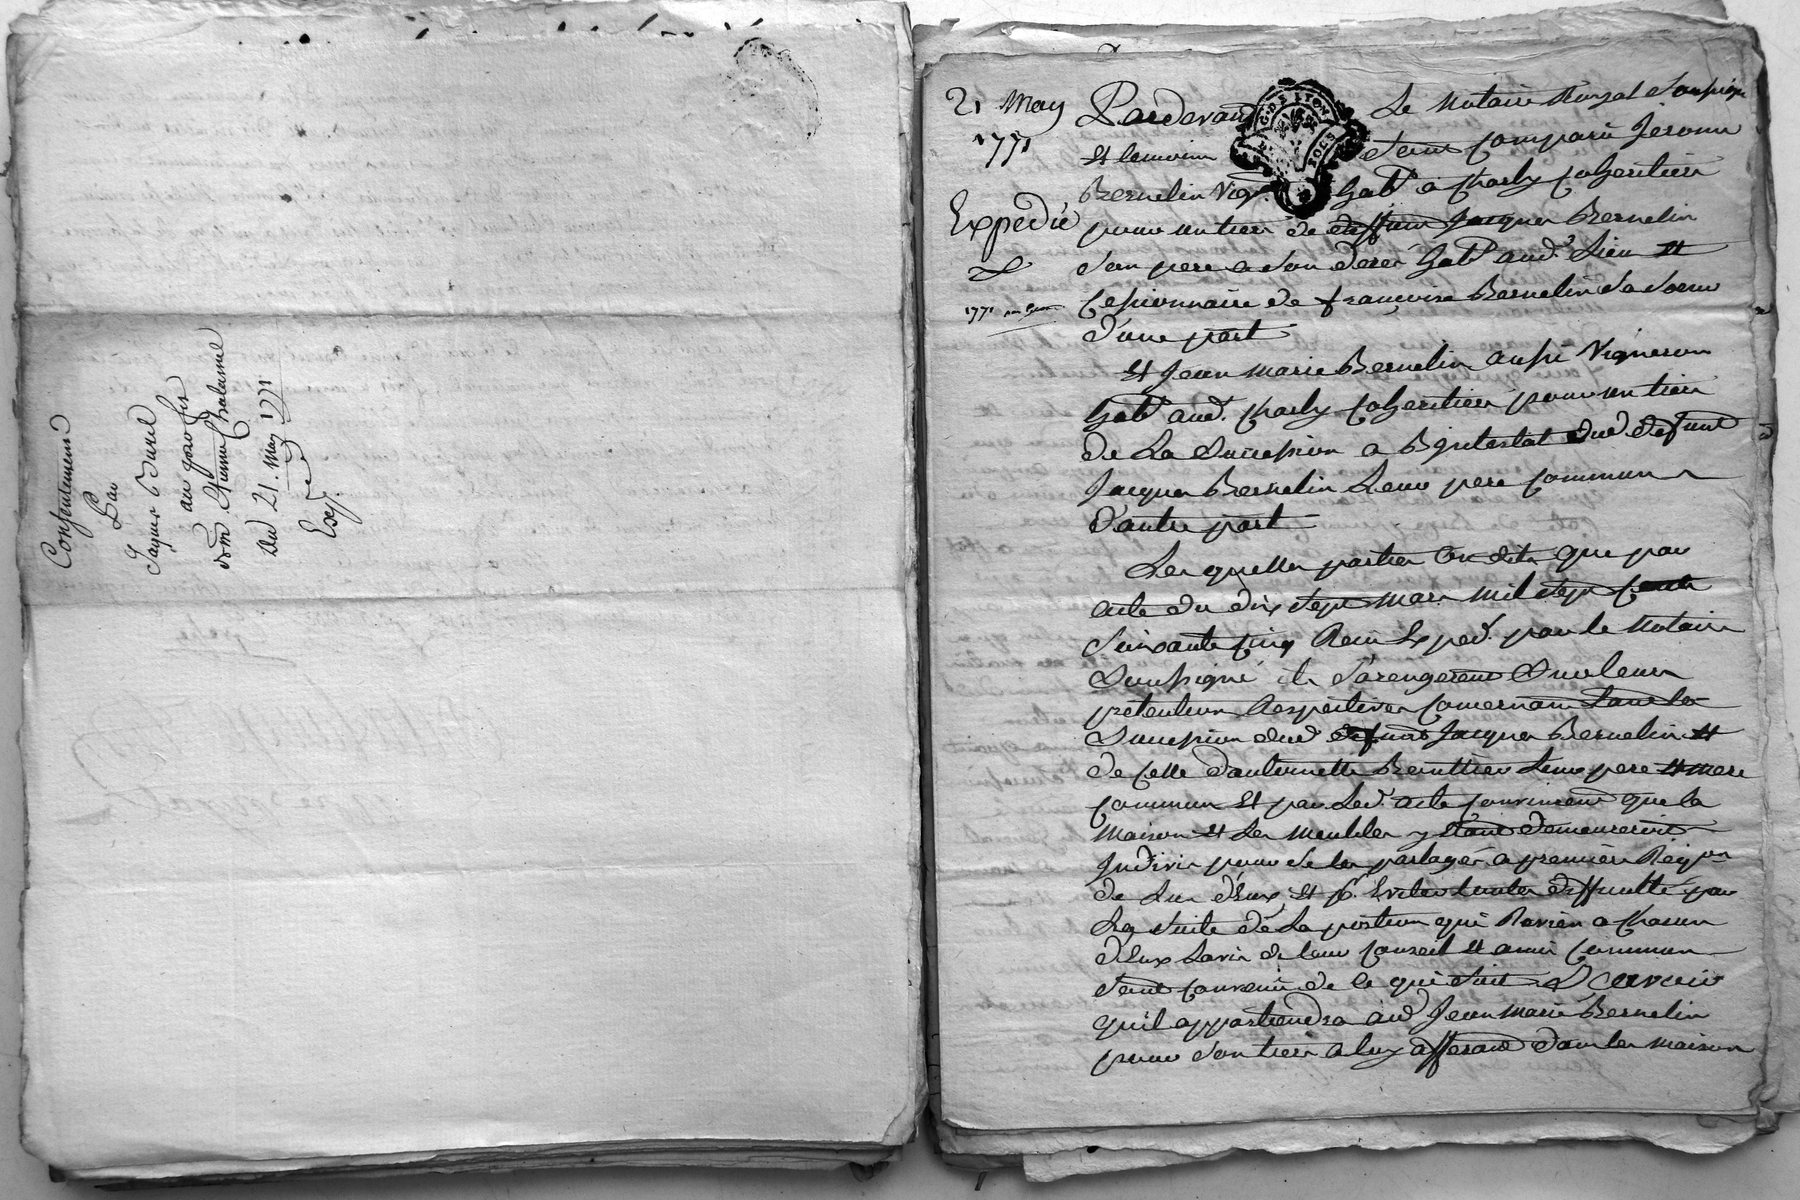 Consentement
Par
Jaques Durel
au profit
dom Etienne Chalasme
Du 21. May 1771
Exp.
21 May
1771
Expedié
1771
Pardevant Le Notaire Royal Soussigné
et temoins sont Comparu Jerome
Bernelin Vig. hab.t a Charly Coheritier
pour un tiers de deffunt Jacques Bernelin
son pere a son deces hab.t aud. Lieu et
Cessionnaire de françoise Bernelin sa soeur
d'une part
et Jean Marie Bernelin aussi Vigneron
hab.t aud. Charly Coheritier pour un tiers
de La Succession a Bintestat dud. defunt
Jacques Bernelin Leur pere Commun
d'autre part
Lesquelles parties Ont dit que par
acte du dix sept mars mil sept Cents
soixante Cinq Receu Exped. par le Notaire
Soussigné ils s'arengerent sur leurs
pretentions Respectives Concernant tant la
Succession dud. defunt Jacques Bernelin et
de Celle d'antoinette Berthier Leur pere et mere
Commun et par Led. acte Convinrent que la
Maison et Les Meubles y etant demeureroit
Indivis pour se les partager a premiere Req.on
de L'un d'Eux et p.r Eviter toutes difficultés par
La suite de La portion qui Revien a Chacun
d'Eux L'avis de leur Conseil et amis Commun
sont Convenu de Ce qui suit Scavoir
qu'il appartiendra aud. Jean Marie Bernelin
pour son tiers a luy afferant dans les maison